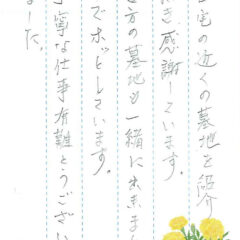 宅の近くの墓地を紹介
き、感謝しています。
方の墓地も一緒に出来まし
でホッとしています。
寧な仕事有難とうござい
ました。